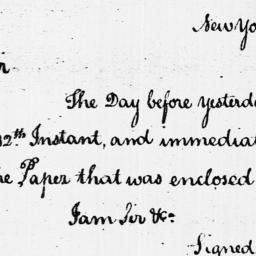 New Yo
r
The Day before yesterd
12th Instant, and immediat
he Paper that was enclosed
I am Sir &c.
Signed